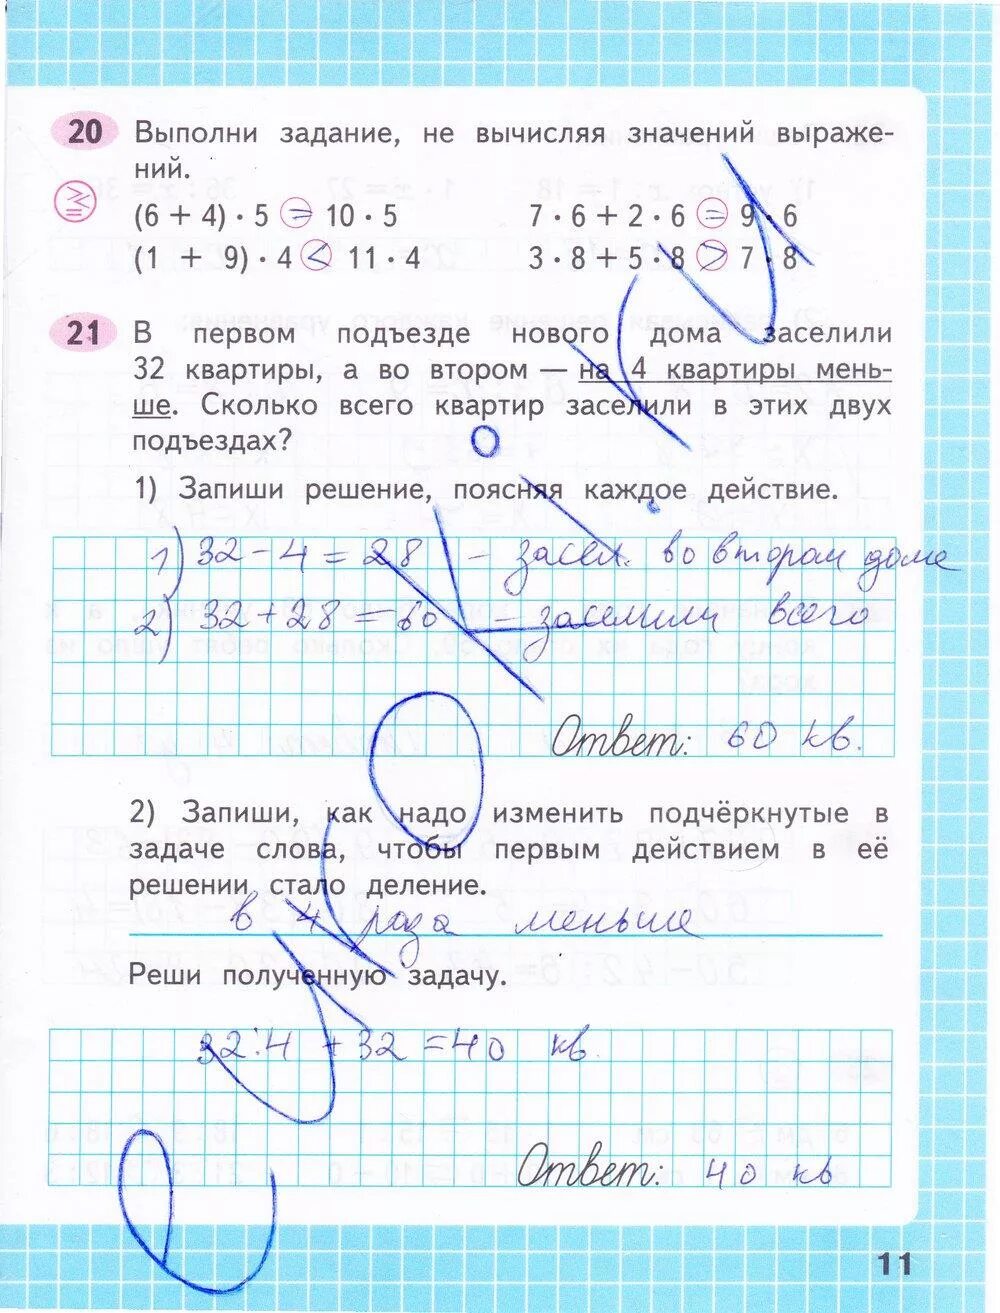 20 Выполни задание, не вычисляя значений выраже-
ний.
(6 + 4) · 5 = 10 · 5 7 · 6 + 2 · 6 = 9 · 6
(1 + 9) · 4 < 11 · 4 3 · 8 + 5 · 8 > 7 · 8
21 В первом подъезде нового дома заселили
32 квартиры, а во втором — на 4 квартиры мень-
ше. Сколько всего квартир заселили в этих двух
подъездах?
1) Запиши решение, поясняя каждое действие.
1) 32 - 4 = 28 - засел. во втором доме
2) 32 + 28 = 60 - заселили всего
Ответ: 60 кв.
2) Запиши, как надо изменить подчёркнутые в
задаче слова, чтобы первым действием в её
решении стало деление.
в 4 раза меньше
Реши полученную задачу.
32 : 4 + 32 = 40 кв.
Ответ: 40 кв
11